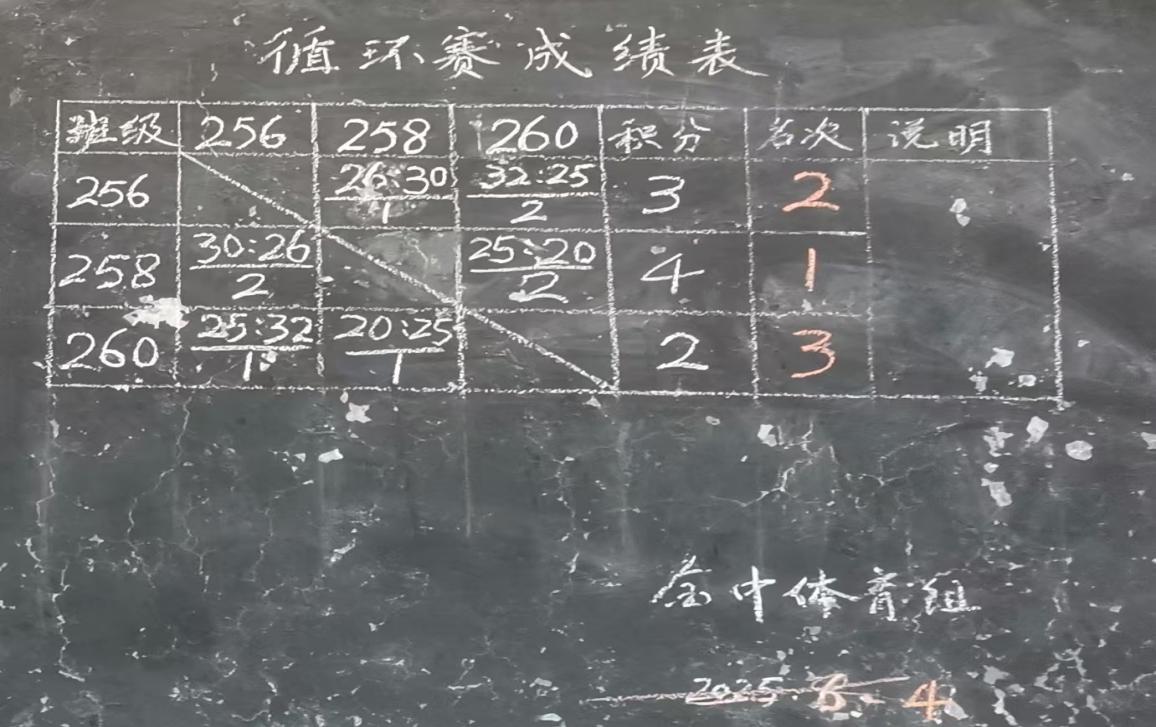 循环赛成绩表
班级 256 258 260 积分 名次 说明
256 26:30 32:25 3 2
1 2
258 30:26 25:20 4 1
2 2
260 25:32 20:25 2 3
1 1
金中体育组
2025 6. 4